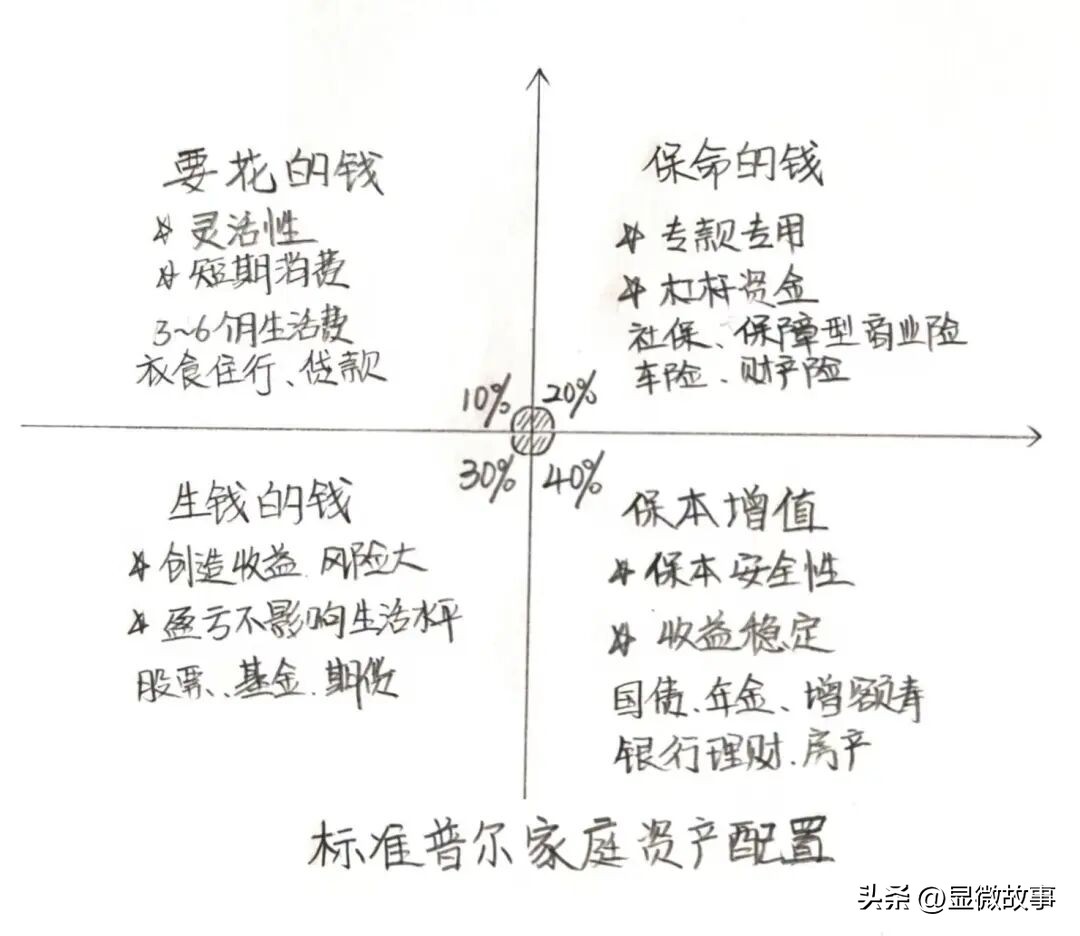 要花的钱
* 灵活性
* 短期消费
3~6个月生活费
衣食住行、贷款
10%
保命的钱
* 专款专用
* 杠杆资金
社保、保障型商业险
车险、财产险
20%
30%
生钱的钱
* 创造收益、风险大
* 盈亏不影响生活水平
股票、基金、期货
40%
保本增值
* 保本安全性
* 收益稳定
国债、年金、增额寿
银行理财、房产
标准普尔家庭资产配置
头条 @显微故事